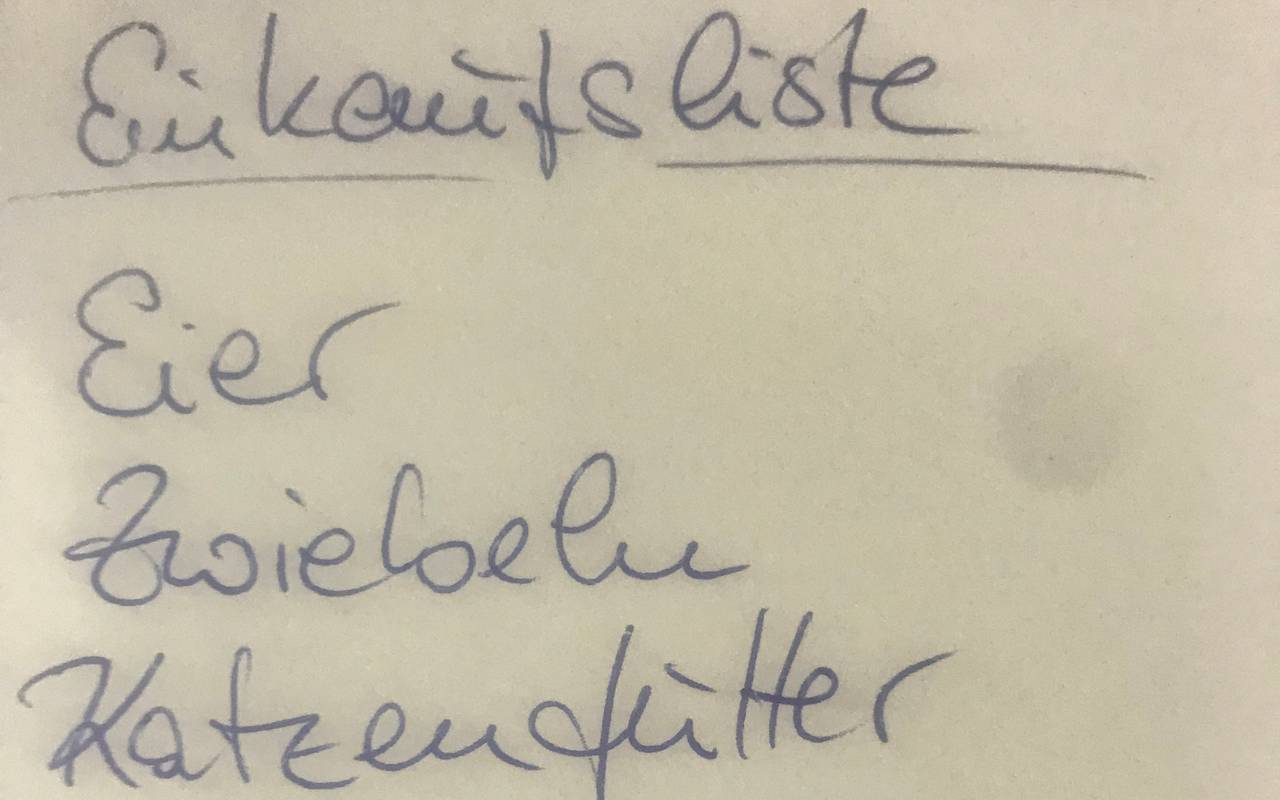 Einkaufsliste
Eier
Zwiebeln
Katzenfutter